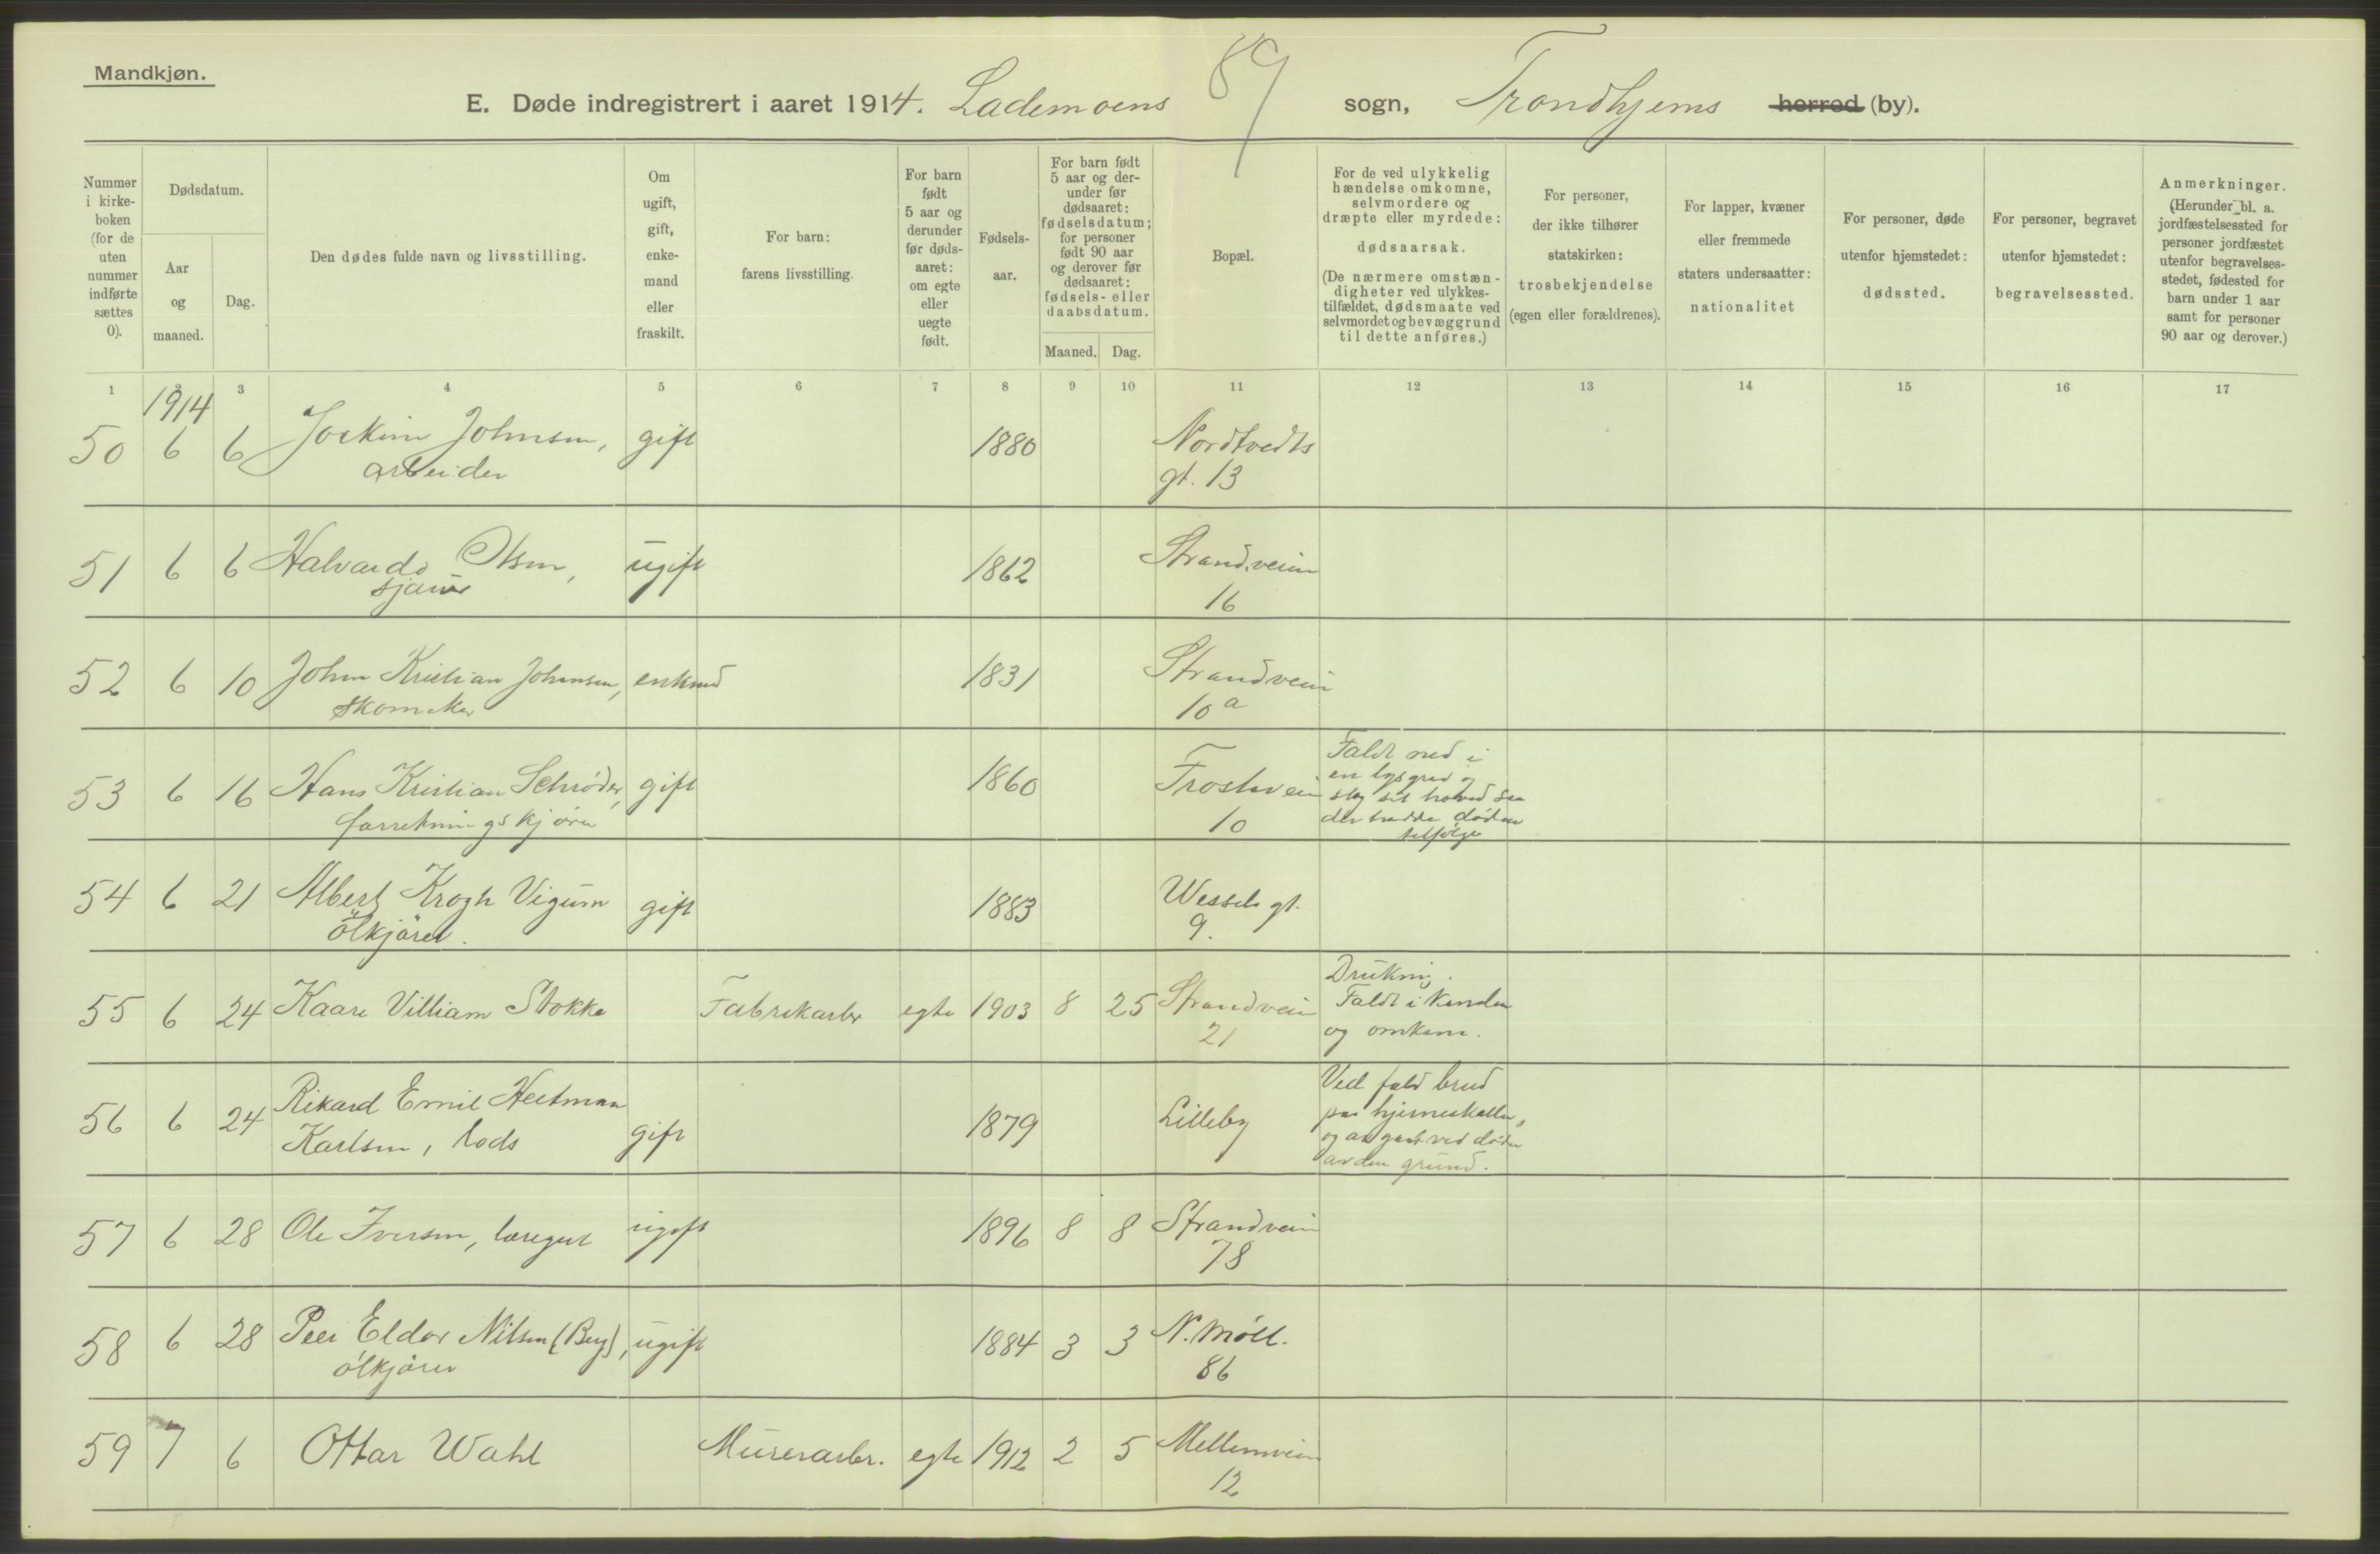 Mandkjøn.
89
E. Døde indregistrert i aaret 1914. Lademoens sogn, Trondhjems herred (by).
Nummer i kirke-boken (for de uten nummer indførte sættes 0).
Dødsdatum.
Aar og maaned.
Dag.
Den dødes fulde navn og livsstilling.
Om ugift, gift, enke-mand eller fraskilt.
For barn: farens livsstilling.
For barn født 5 aar og derunder før døds-aaret: om egte eller uegte født.
Fødsels-aar.
For barn født 5 aar og der-under før dødsaaret: fødselsdatum; for personer født 90 aar og derover før dødsaaret: fødsels- eller daabsdatum.
Maaned. Dag.
Bopæl.
For de ved ulykkelig hændelse omkomne, selvmordere og dræpte eller myrdede: dødsaarsak.
(De nærmere omstæn-digheter ved ulykkes-tilfældet, dødsmaate ved selvmordet og bevæggrund til dette anføres.)
For personer, der ikke tilhører statskirken: trosbekjendelse (egen eller forældrenes).
For lapper, kvæner eller fremmede staters undersaatter: nationalitet
For personer, døde utenfor hjemstedet: dødssted.
For personer, begravet utenfor hjemstedet: begravelsessted.
Anmerkninger. (Herunder bl. a. jordfæstelsessted for personer jordfæstet utenfor begravelses-stedet, fødested for barn under 1 aar samt for personer 90 aar og derover.)
1 2 3 4 5 6 7 8 9 10 11 12 13 14 15 16 17
1914
50 6 6 Joakim Johnsen, gift 1880 Nordtvedts
arbeider gt. 13
51 6 6 Halvard Olsen, ugift 1862 Strandveien
sjauer 16
52 6 10 John Kristian Johnsen, enkmd 1831 Strandvein
skomaker 10 a
53 6 16 Hans Kristian Schrøder, gift 1860 Frostavein Faldt ned i
forretningskjører 10 en lysgrav og
slog sit hoved saa
der traadde døden
tilfølge
54 6 21 Albert Krogh Vigum gift 1883 Wessels gt.
ölkjörer. 9.
55 6 24 Kaare Villiam Stokke Fabrikarbr egte 1903 8 25 Strandvein Drukning.
21 Faldt i kanalen
og omkom.
56 6 24 Rikard Emil Heitman Ved fald brud
Karlsen, lods gift 1879 Lilleby paa hjerneskallen,
og avgaat ved døden
av den grund.
57 6 28 Ole Iversen, læregut ugift 1896 8 8 Strandvein
78
58 6 28 Peer Eldor Nilsen (Berg), ugift 1884 3 3 N. Møll.
ölkjörer 86
59 7 6 Ottar Wahl Murerarbr. egte 1912 2 5 Mellemveien
12